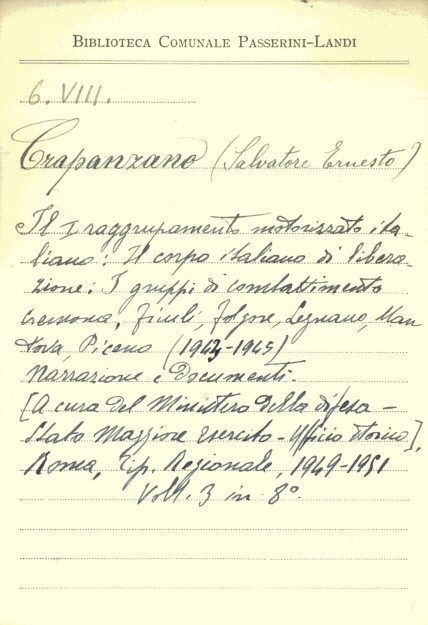 BIBLIOTECA COMUNALE PASSERINI-LANDI
6. VIII.
Crapanzano (Salvatore Ernesto)
Il I raggrupamento motorizzato ita-
liano: Il corpo italiano di libera-
zione: I gruppi di combattimento
Cremona, Friuli, Folgore, Legnano, Man
tova, Piceno (1943-1945)
Narrazione e Documenti.
[A cura del Ministero della difesa -
Stato Maggiore Esercito - Ufficio storico],
Roma, Tip. Regionale, 1949-1951
Voll. 3 in 8°.